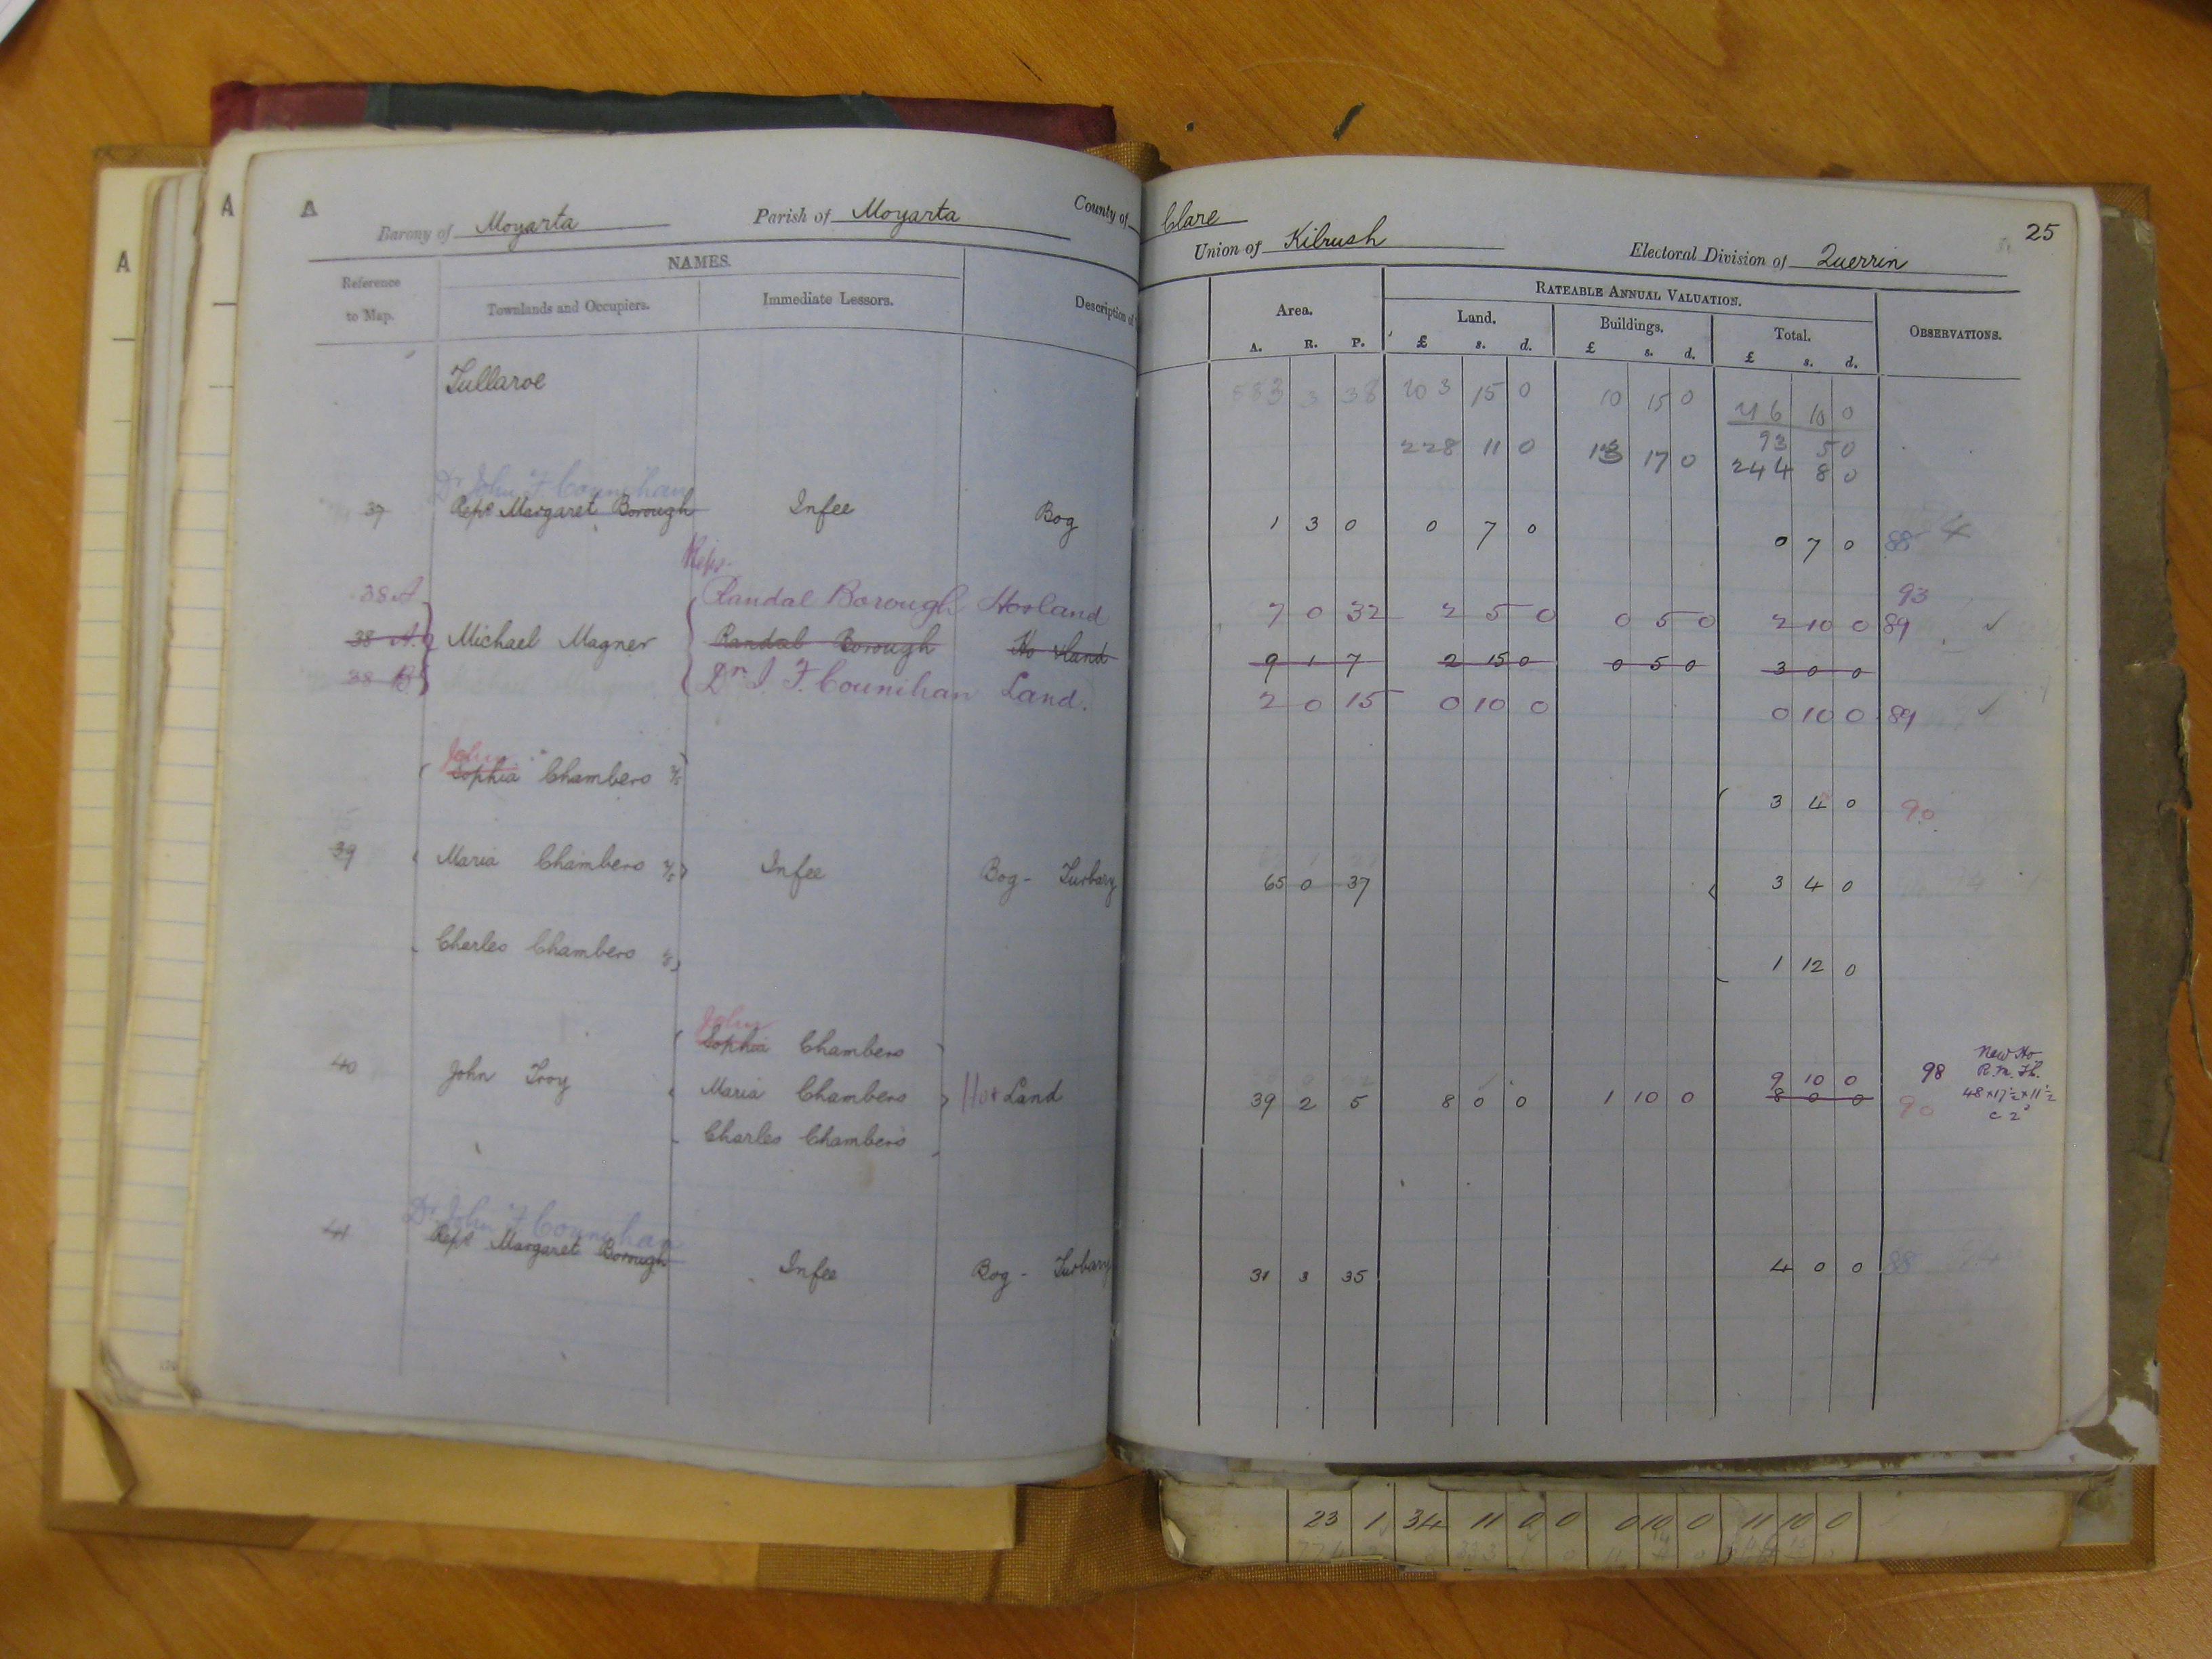 A
A
A
Barony of Moyarta Parish of Moyarta County of Clare
Union of Kilrush Electoral Division of Querrin 25
Reference to Map.
NAMES.
Townlands and Occupiers.
Immediate Lessors.
Description of
Area.
A. R. P.
RATEABLE ANNUAL VALUATION.
Land.
£ s. d.
Buildings.
£ s. d.
Total.
£ s. d.
OBSERVATIONS.
Tullaroe 3 38 103 15 0 10 15 0 10 0
93 5 0
228 11 0 13 17 0 244 8 0
Dr John F Counihan
37 Reps Margaret Borough Infee Bog 1 3 0 0 7 0 0 7 0 88
Reps
93
38 A Randal Borough Ho & land 7 0 32 2 5 0 0 5 0 2 10 0 89
38 A Michael Magner Randal Borough Ho & land 9 1 7 2 15 0 0 5 0 3 0 0
38 B Dr J. F. Counihan Land. 2 0 15 0 10 0 0 10 0 89
John
Sophia Chambers 2/5 3 4 0 90
39 Maria Chambers 2/5 Infee Bog - Turbary 65 0 37 3 4 0
Charles Chambers 1/5 1 12 0
John
Sophia Chambers
40 John Troy Maria Chambers Ho & Land 39 2 5 8 0 0 1 10 0 8 0 0 90
9 10 0 98
New Ho
48 x 17½ x 11½
Charles Chambers
Dr John F Counihan
41 Reps Margaret Borough Infee Bog - Turbary 31 3 35 4 0 0 88
23 1 34 11 0 0 0 10 0 11 10 0